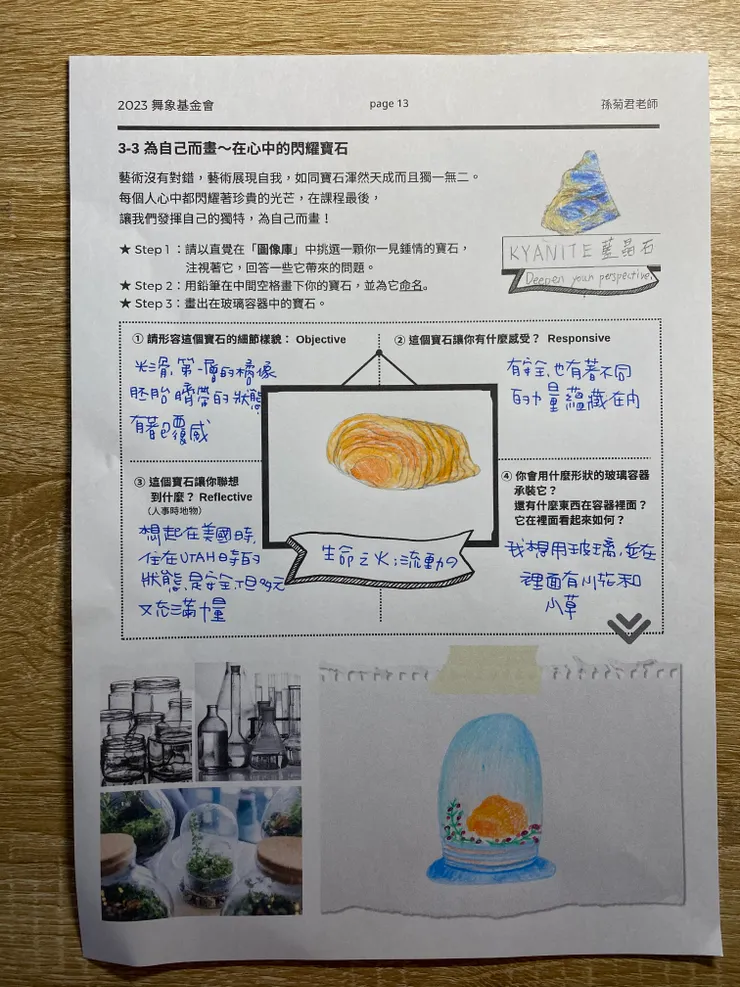 2023 舞象基金會
page 13
孫菊君老師
3-3 為自己而畫～在心中的閃耀寶石
藝術沒有對錯，藝術展現自我，如同寶石渾然天成而且獨一無二。
每個人心中都閃耀著珍貴的光芒，在課程最後，
讓我們發揮自己的獨特，為自己而畫！
★ Step 1：請以直覺在「圖像庫」中挑選一顆你一見鍾情的寶石，
注視著它，回答一些它帶來的問題。
★ Step 2：用鉛筆在中間空格畫下你的寶石，並為它命名。
★ Step 3：畫出在玻璃容器中的寶石。
KYANITE 藍晶石
Deepen your perspective.
① 請形容這個寶石的細節樣貌： Objective
光滑,第一層的橘像
胚胎臍帶的狀態
有著包覆感
② 這個寶石讓你有什麼感受？ Responsive
有安全,也有著不同
的力量蘊藏在內
③ 這個寶石讓你聯想
到什麼？ Reflective
（人事時地物）
想起在美國時,
住在UTAH時的
狀態,是安全,但多元
又充滿力量
④ 你會用什麼形狀的玻璃容器
承裝它？
還有什麼東西在容器裡面？
它在裡面看起來如何？
我想用玻璃,並在
裡面有小花和
小草
生命之火;流動の